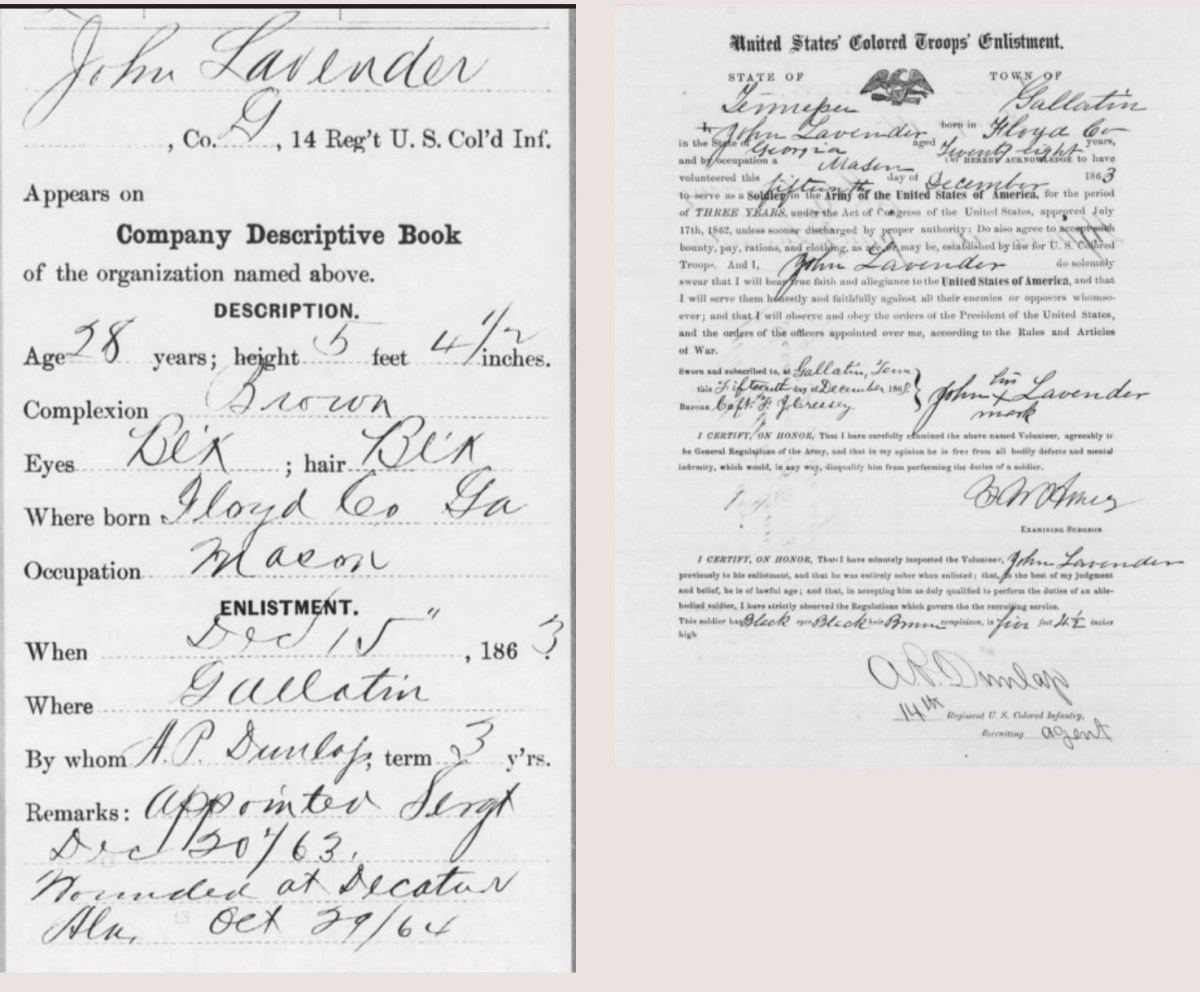 John Lavender
, Co. G, 14 Reg't U. S. Col'd Inf.
Appears on
Company Descriptive Book
of the organization named above.
DESCRIPTION.
Age 28 years; height 5 feet 4 1/2 inches.
Complexion Brown
Eyes Blk ; hair Blk
Where born Floyd Co Ga
Occupation Mason
ENLISTMENT.
When Dec 15" , 1863.
Where Gallatin
By whom A. P. Dunlap; term 3 y'rs.
Remarks: Appointed Sergt
Dec 20"/63.
Wounded at Decatur
Ala. Oct 29/64
United States' Colored Troops' Enlistment.
STATE OF TOWN OF
Tennessee Gallatin
I, John Lavender born in Floyd Co
in the State of Georgia aged Twenty eight years,
and by occupation a Mason HEREBY ACKNOWLEDGE to have
volunteered this fifteenth day of December 1863
to serve as a Soldier in the Army of the United States of America, for the period
of THREE YEARS, under the Act of Congress of the United States, approved July
17th, 1862, unless sooner discharged by proper authority: Do also agree to accept such
bounty, pay, rations, and clothing, as are, or may be, established by law for U. S. Colored
Troops. And I, John Lavender do solemnly
swear that I will bear true faith and allegiance to the United States of America, and that
I will serve them honestly and faithfully against all their enemies or opposers whomso-
ever; and that I will observe and obey the orders of the President of the United States,
and the orders of the officers appointed over me, according to the Rules and Articles
of War.
Sworn and subscribed to, at Gallatin, Tenn
this Fifteenth day of December 1863.
BEFORE Capt. F. J. Cressey.
John his x mark Lavender
I CERTIFY, ON HONOR, That I have carefully examined the above named Volunteer, agreeably to
he General Regulations of the Army, and that in my opinion he is free from all bodily defects and mental
infirmity, which would, in any way, disqualify him from performing the duties of a soldier.
EXAMINING SURGEON.
I CERTIFY, ON HONOR, That I have minutely inspected the Volunteer, John Lavender
previously to his enlistment, and that he was entirely sober when enlisted; that, to the best of my judgment
and belief, he is of lawful age; and that, in accepting him as duly qualified to perform the duties of an able-
bodied soldier, I have strictly observed the Regulations which govern the recruiting service.
This soldier has Black eyes Black hair Brown complexion, is five feet 4 1/2 inches
high
A. P. Dunlap
14th Regiment U. S. Colored Infantry,
Recruiting agent